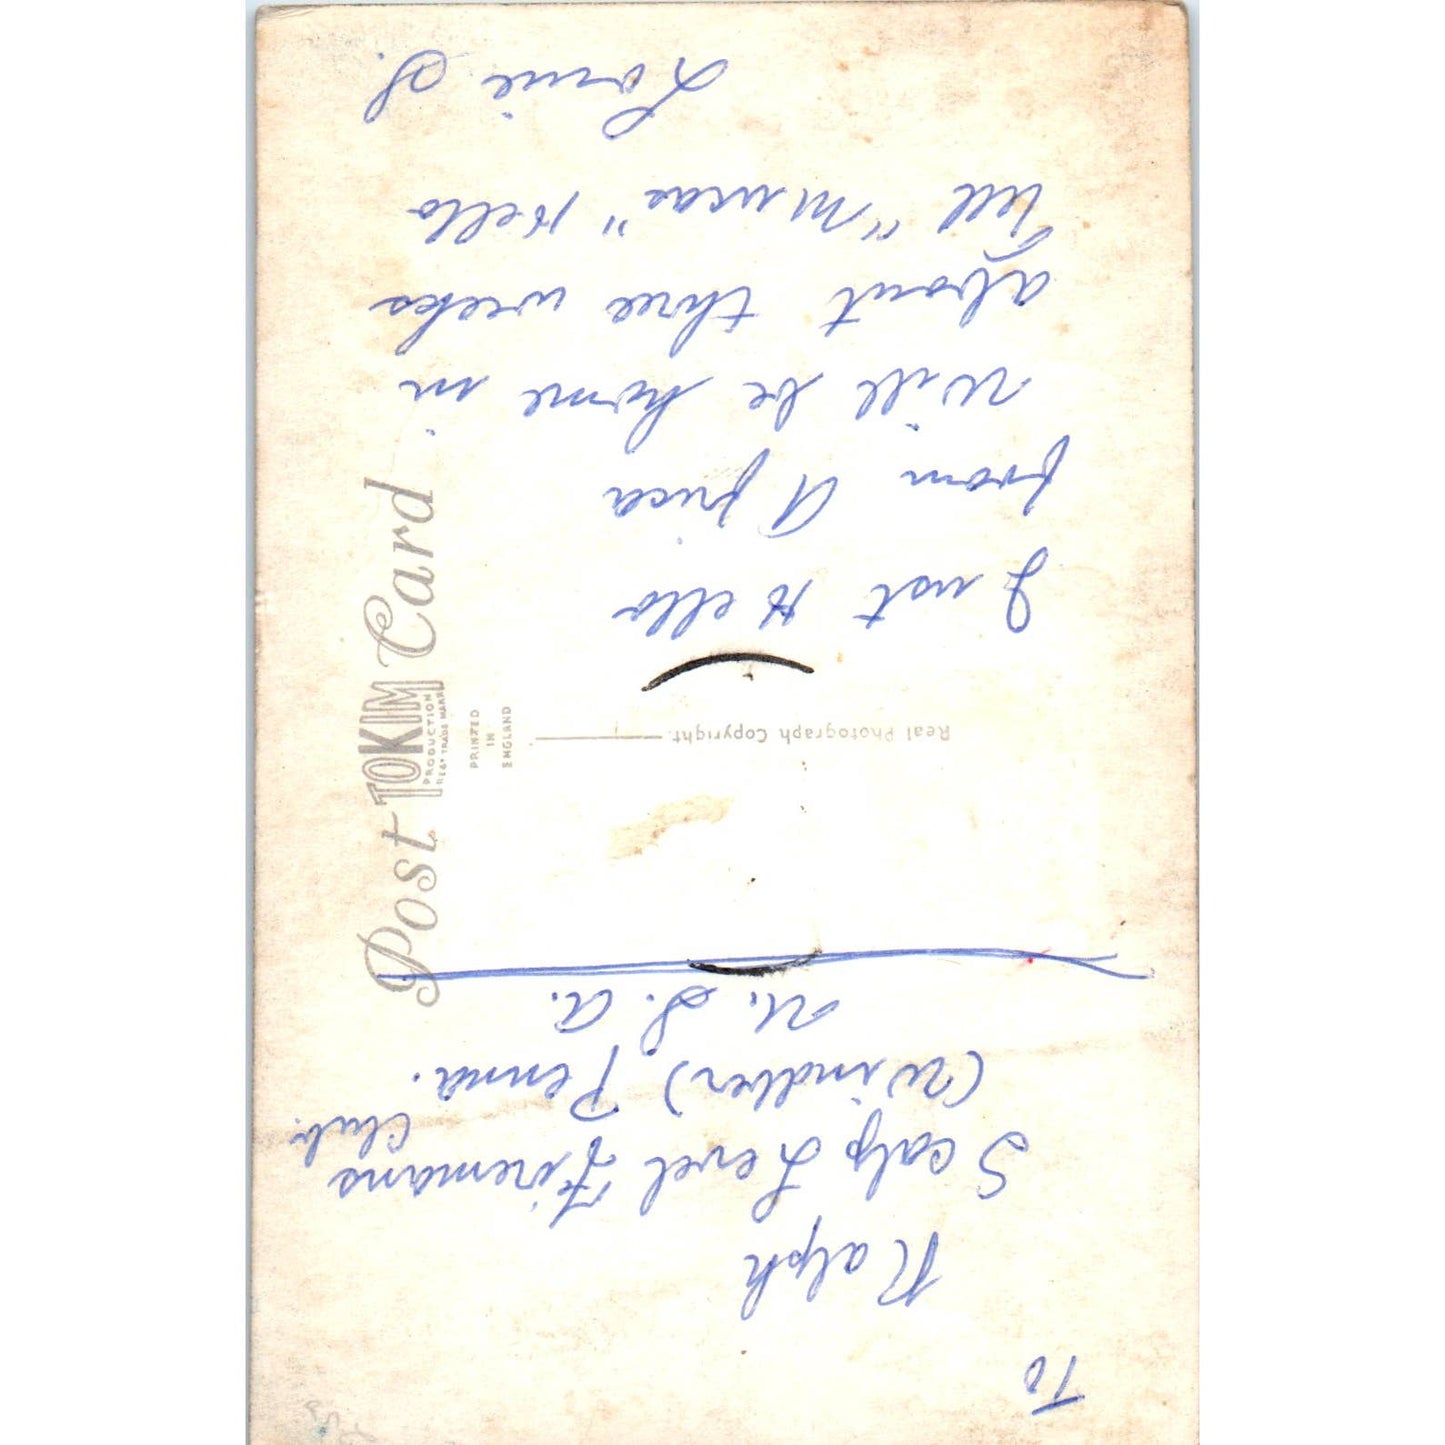 To
Ralph
Scalp Level Firemans
Club.
(Windber) Penna.
U. S. A.
Real Photograph Copyright.
Just Hello
from Africa
Will be home in
about three weeks
Tell "Mucas" Hello
Lorie S.
Post Card
TOKIM
PRODUCTION
REG. TRADE MARK
PRINTED
IN
ENGLAND